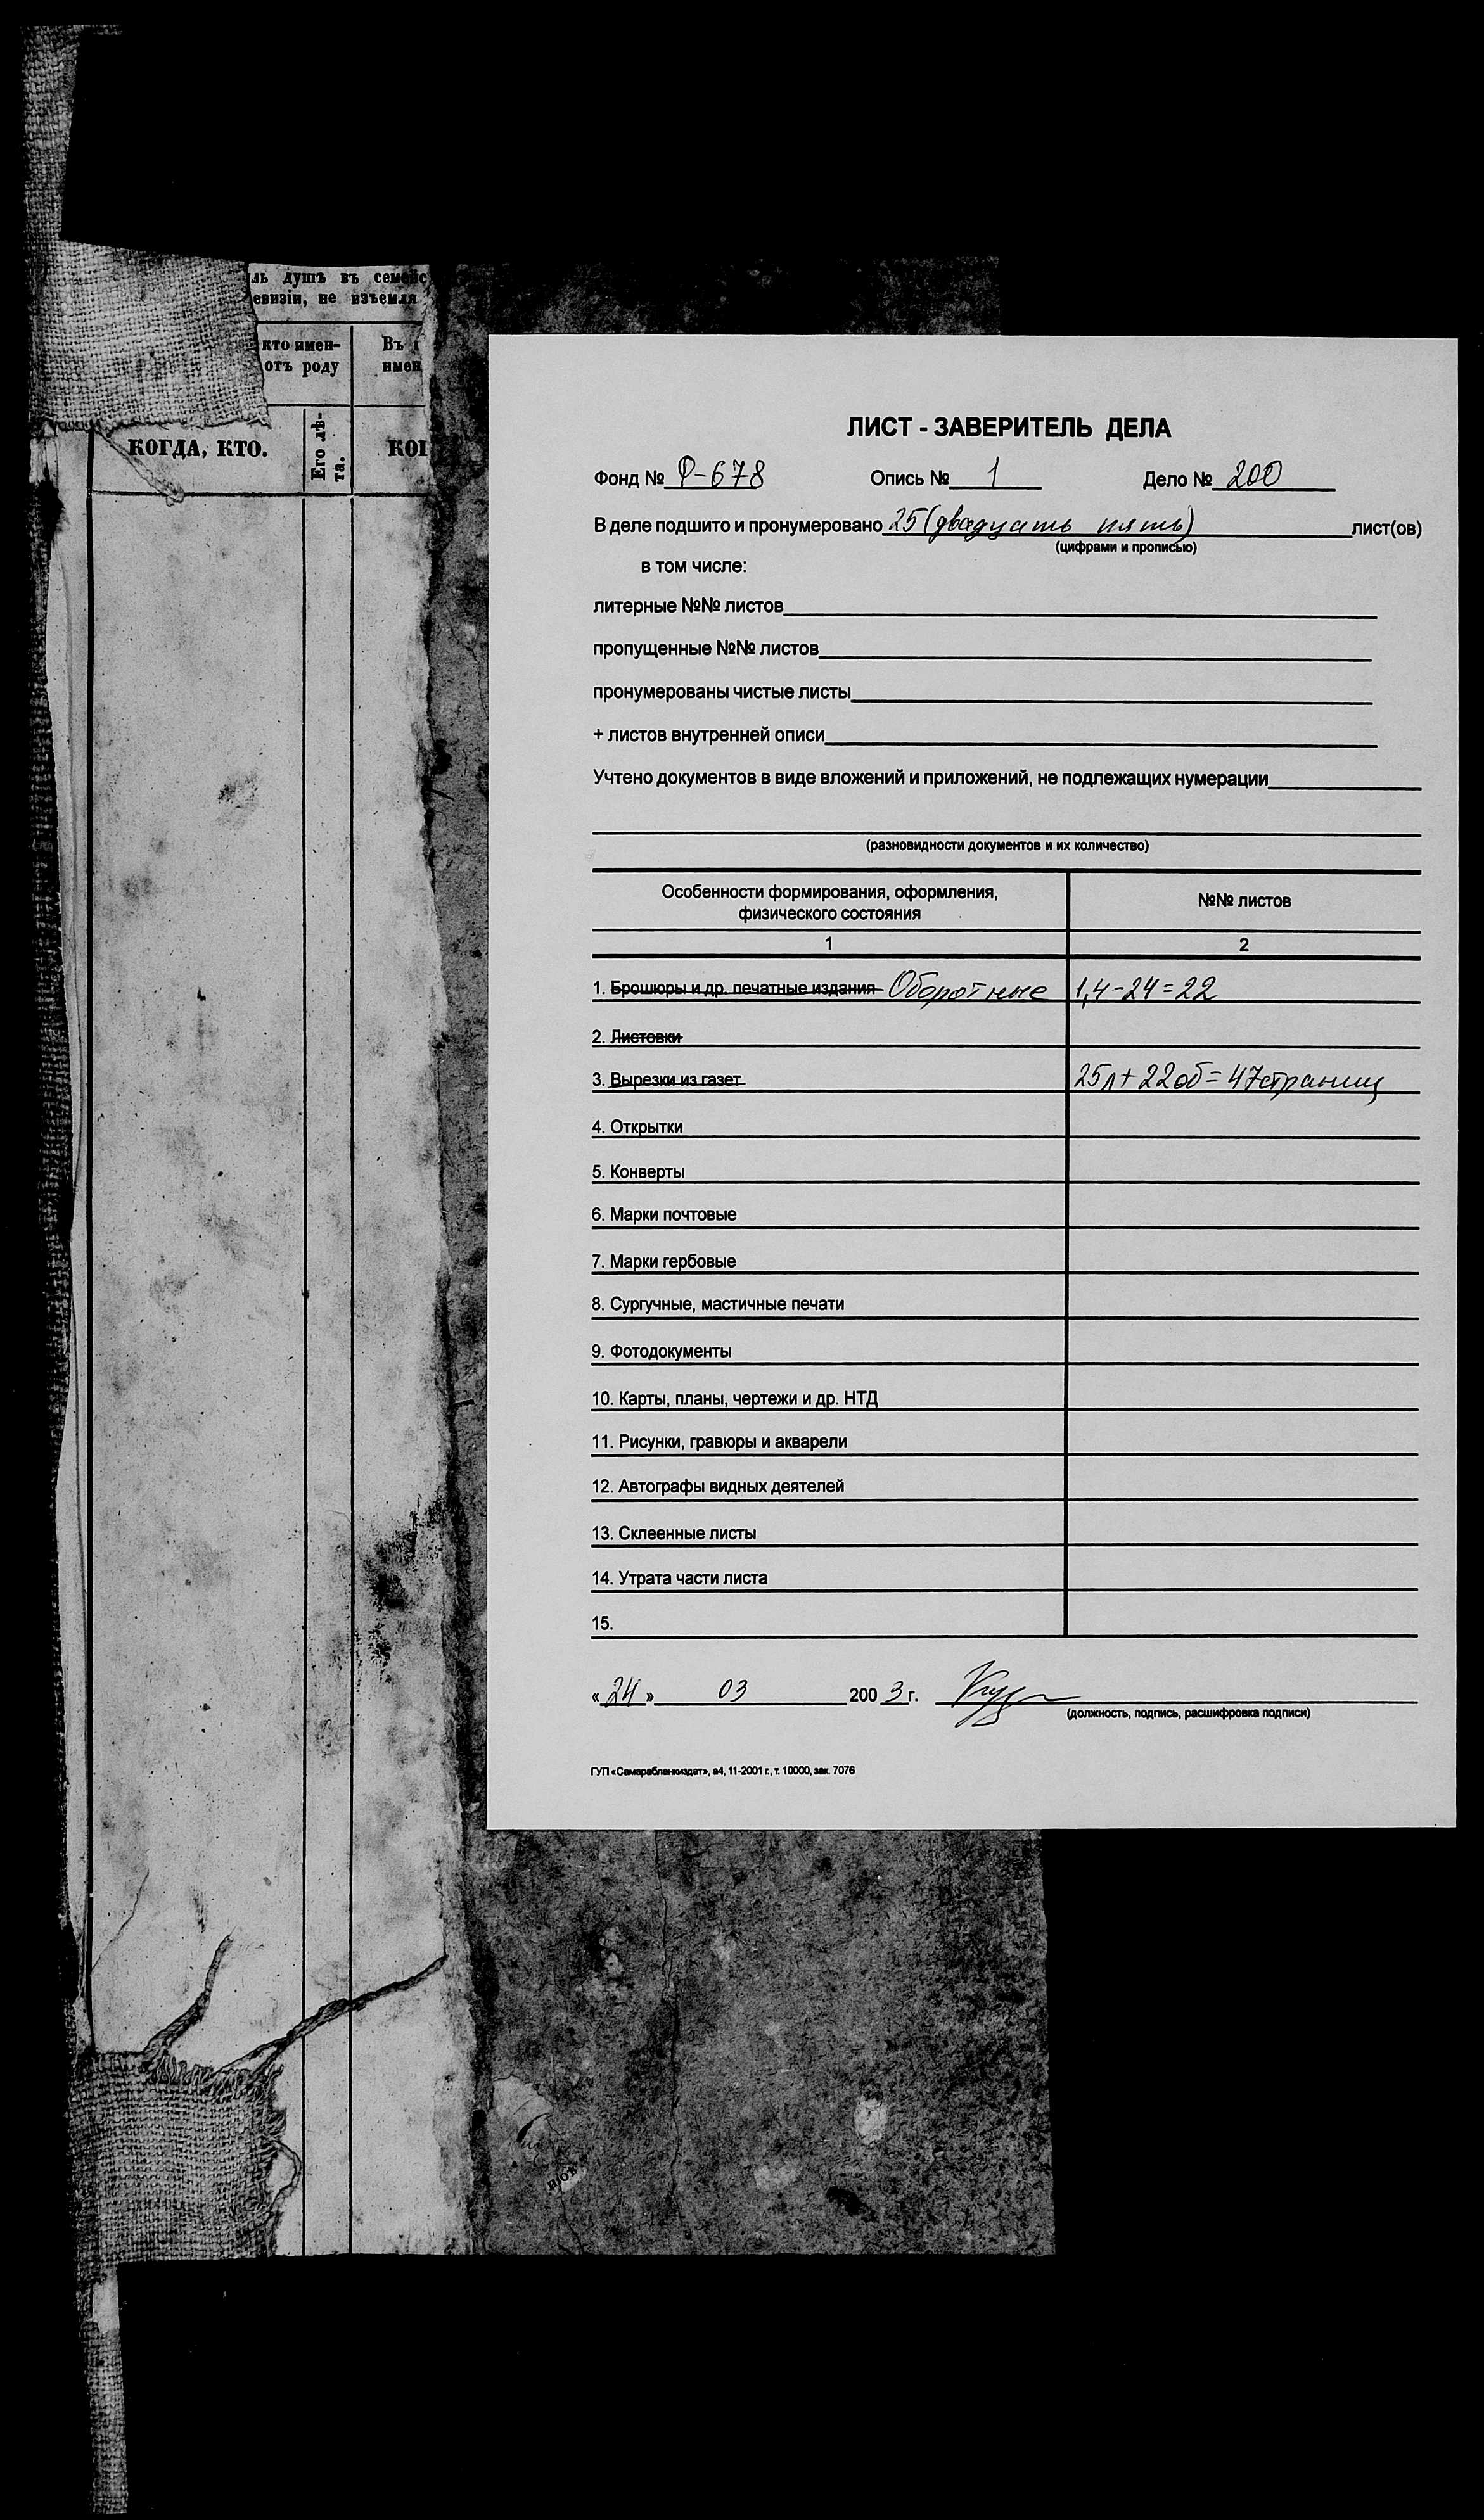 ль душъ въ семейс
евизіи, не изъемля
кто имен-
отъ роду
Въ
имен
КОГДА, КТО.
Его лѣ-
та.
КОГ
ЛИСТ - ЗАВЕРИТЕЛЬ ДЕЛА
Фонд № Р-678 Опись № 1 Дело № 200
В деле подшито и пронумеровано 25 (двадцать пять) лист(ов)
(цифрами и прописью)
в том числе:
литерные №№ листов
пропущенные №№ листов
пронумерованы чистые листы
+ листов внутренней описи
Учтено документов в виде вложений и приложений, не подлежащих нумерации
(разновидности документов и их количество)
Особенности формирования, оформления,
физического состояния
№№ листов
1 2
1. Брошюры и др. печатные издания Оборотные 1,4-24=22
2. Листовки
3. Вырезки из газет 25л+22об=47страниц
4. Открытки
5. Конверты
6. Марки почтовые
7. Марки гербовые
8. Сургучные, мастичные печати
9. Фотодокументы
10. Карты, планы, чертежи и др. НТД
11. Рисунки, гравюры и акварели
12. Автографы видных деятелей
13. Склеенные листы
14. Утрата части листа
15.
«24» 03 2003 г.
(должность, подпись, расшифровка подписи)
ГУП «Самарабланкиздат», а4, 11-2001 г., т. 10000, зак. 7076